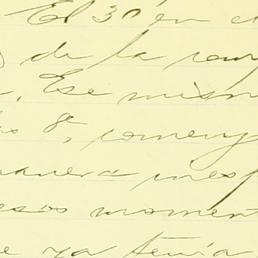 El 30 en el
de la
. Ese mism
8, comenz
manera ines
esos moment
e ya tenía